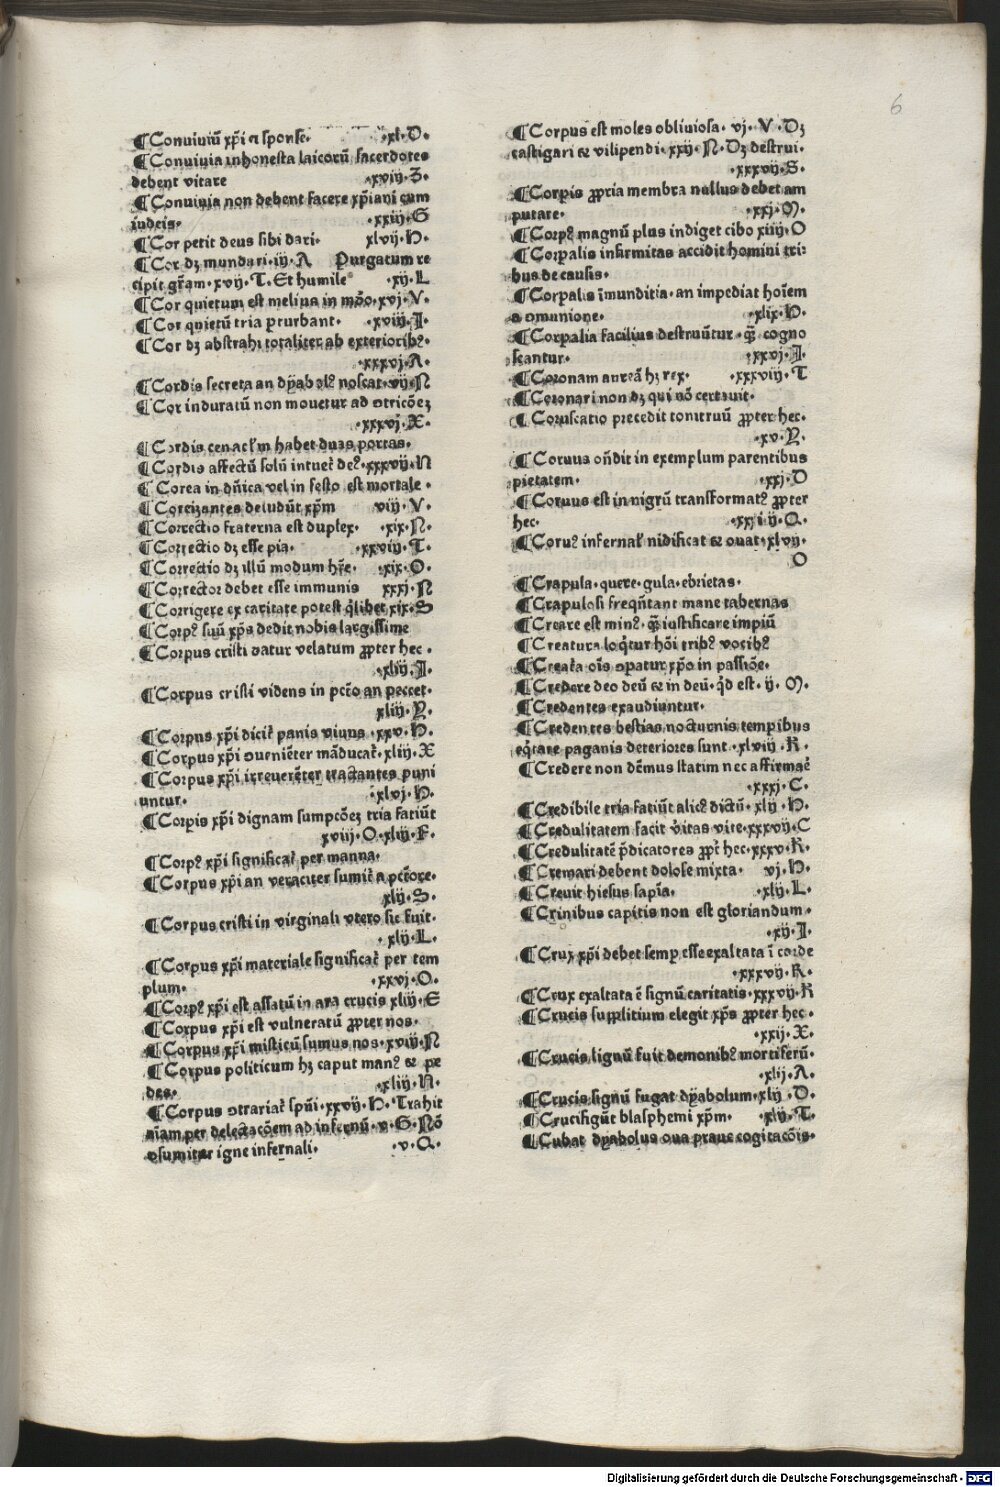 6
¶Conuiuiū xp̄i ⁊ sponse. ·xl·D·
¶Conuiuia inhonesta laicorū sacerdotes
debent vitare ·xviij·Z·
¶Conuiuia non debent facere xp̄iani cum
iudeis· ·xxiij·G
¶Cor petit deus sibi dari· xlvij·H·
¶Cor dꝫ mundari·iij·A Purgatum re
cipit gr̄am·xvij·T·Et humile ·xij·L
¶Cor quietum est melius in mō̄o·xvj·V·
¶Cor quietū tria ꝑturbant· ·xviij·J·
¶Cor dꝫ abstrahi totaliter ab exteriorib⁹·
·xxxvj·A·
¶Cordis secreta an dyabol⁹ noscat·vij·N
¶Cor induratū non mouetur ad ɔtricōeꝫ
·xxxvj·X·
¶Cordis cenacl'm habet duas portas·
¶Cordis affectū solū intuet᷑ de⁹·xxxvij·N
¶Corea in dn̄ica vel in festo est mortale·
¶Corizantes deludūt xp̄m viij·V·
¶Correctio fraterna est duplex· ·xix·N·
¶Correctio dꝫ esse pia· ·xxviij·T·
¶Correctio dꝫ illū modum hr̄e· ·xix·O·
¶Corrector debet esse immunis xxxj·N
¶Corrigere ex caritate potest q̇libet xix·S
¶Corp⁹ suū xp̄s dedit nobis largissime
¶Corpus cristi datur velatum ꝓpter hec·
·xliij·J·
¶Corpus cristi videns in pct̄o an peccet·
xliij·Y·
¶Corpus xp̄i dicit᷑ panis viuus ·xxv·H·
¶Corpus xp̄i ɔueniēter māducat᷑·xliij·X
¶Corpus xp̄i irreuerēter tractantes puni
untur· ·xlvj·H·
¶Corpis xp̄i dignam sumpcōeꝫ tria faciūt
xviij·O·xliij·F·
¶Corp⁹ xp̄i significat᷑ per manna·
¶Corpus xp̄i an veraciter sumit᷑ a pct̄ore·
xlij·S·
¶Corpus cristi in virginali vtero sic fuit·
·xlij·L·
¶Corpus xp̄i materiale significat᷑ per tem
plum· ·xxvj·O·
¶Corp⁹ xp̄i est assatū in ara crucis xliij·E
¶Corpus xp̄i est vulneratū ꝓpter nos·
¶Corpus xp̄i misticū sumus nos·xviij·N
¶Corpus politicum hꝫ caput man⁹ ⁊ pe
des· ·xliij·N·
¶Corpus ɔtrariat᷑ spūi·xxvij·H·Trahit
aīam per delectacōem ad infernū·v·G·Nō
ɔsumitur igne infernali· ·v·Q·
¶Corpus est moles obliuiosa· vj·V·Dꝫ
castigari ⁊ vilipendi·xxij·N·Dꝫ destrui·
·xxxvij·S·
¶Corpis ꝓpria membra nullus debet am
putare· ·xxj·M·
¶Corp⁹ magnū plus indiget cibo xiiij·O
¶Corpalis infirmitas accidit homini tri:
bus de causis·
¶Corpalis īmunditia·an impediat hoīem
a ɔmunione· ·xlix·H·
¶Corpalia facilius destruūtur·q̄ cogno
scantur· ·xxvj·J·
¶Coronam aureā hꝫ rex· ·xxxviij·T
¶Coronari non dꝫ qui nō certauit·
¶Coruscatio precedit tonitruū ꝓpter hec·
·xv·Y·
¶Coruus on̄dit in exemplum parentibus
pietatem· ·xxj·D
¶Coruus est in nigrū transformat⁹ ꝓpter
hec· ·xxiij·Q·
¶Coru⁹ infernal' nidificat ⁊ ouat·xlvij·
O
¶Crapula·quere·gula·ebrietas·
¶Crapulosi freqn̄tant mane tabernas
¶Creare est min⁹·q̄ iustificare impiū
¶Creatura loq̇tur hōi trib⁹ vocib⁹
¶Creat᷑a oīs ɔpatur xp̄o in passiōe·
¶Credere deo deū ⁊ in deū·q̇d est·ij·M·
¶Credentes exaudiuntur·
¶Credentes bestias nocturnis temp̄ibus
eq̇tare paganis deteriores sunt·xlviij·K·
¶Credere non dēmus statim nec affirmar᷑
·xxxj·C·
¶Credibile tria faciūt alic⁹ dictū·xlij·H·
¶Credulitatem facit v̄itas vite·xxxvij·C
¶Credulitatē p̄dicatores ꝓpt᷑ hec·xxxv·K·
¶Cremari debent dolose mixta· vj·H·
¶Creuit hiesus sapīa· ·xlij·L·
¶Crinibus capitis non est gloriandum·
·xij·J·
¶Crux xp̄i debet semp esse exaltata ī corde
·xxxvij·R·
¶Crux exaltata ē signū caritatis·xxxvij·R
¶Crucis supplitium elegit xp̄s ꝓpter hec·
·xxij·X·
¶Crucis lignū fuit demonib⁹ mortiferū·
·xlij·A·
¶Crucis signū fugat dyabolum·xlij·D·
¶Crucifigūt blasphemi xp̄m· ·xlij·T·
¶Cubat dyabolus oua praue cogitacōis·
Digitalisierung gefördert durch die Deutsche Forschungsgemeinschaft - DFG